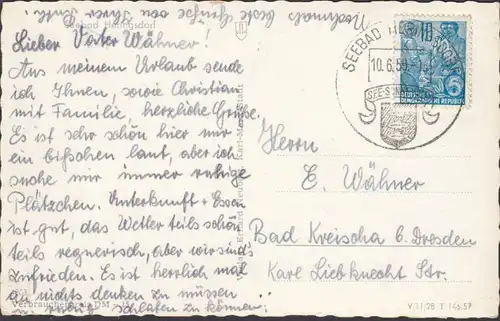 Nochmals beste Grüße von Ihrer Ruth
Seebad Heringsdorf
Lieber Vater Wähner!
Aus meinem Urlaub sende
ich Ihnen, sowie Christian
mit Familie, herzliche Grüße.
Es ist sehr schön hier nur
ein bißchen laut, aber ich
suche mir immer ruhige
Plätzchen. Unterkunft + Essen
ist gut, das Wetter teils schön
teils regnerisch, aber wir sind
zufrieden. Es ist herrlich mal
an nichts denken zu müssen
u. schlafen zu können.
Verbraucherpreis DM
Karl-Marx-Stadt
SEEBAD HERINGSDORF
10.6.59
10
DEUTSCHE
DEMOKRATISCHE REPUBLIK
Herrn
E. Wähner
Bad Kreischa b. Dresden
Karl Liebknecht Str.
V 11/28 T 146/57